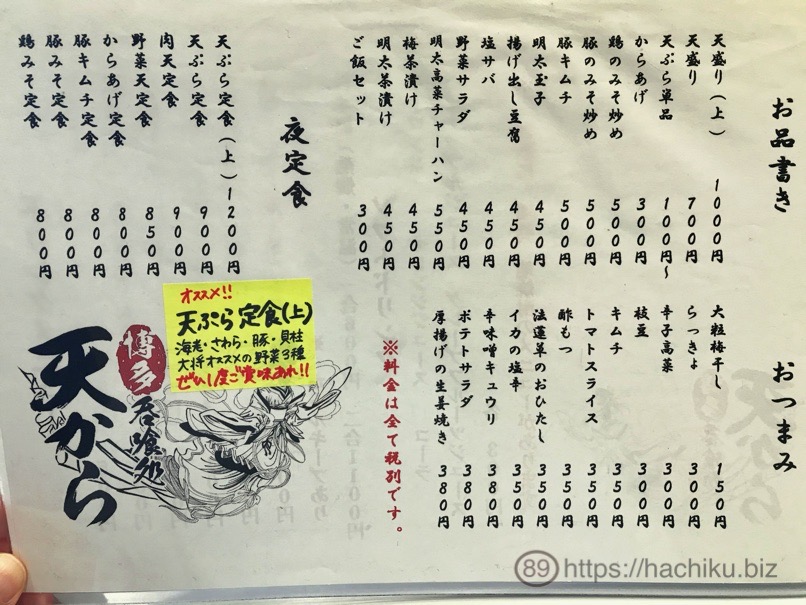 お品書き
天盛り(上) 1000円
天盛り 700円
天ぷら単品 100円~
からあげ 300円
鶏のみそ炒め 500円
豚のみそ炒め 500円
豚キムチ 500円
明太玉子 450円
揚げ出し豆腐 450円
塩サバ 450円
野菜サラダ 450円
明太高菜チャーハン 550円
梅茶漬け 450円
明太茶漬け 450円
ご飯セット 300円
おつまみ
大粒梅干し 150円
らっきょ 300円
辛子高菜 300円
枝豆 300円
キムチ 350円
トマトスライス 350円
酢もつ 350円
法蓮草のおひたし 350円
イカの塩辛 350円
辛味噌キュウリ 380円
ポテトサラダ 380円
厚揚げの生姜焼き 380円
※料金は全て税別です。
夜定食
天ぷら定食(上) 1200円
天ぷら定食 900円
肉天定食 900円
野菜天定食 850円
からあげ定食 800円
豚キムチ定食 800円
豚みそ定食 800円
鶏みそ定食 800円
オススメ!!
天ぷら定食(上)
海老・さわら・豚・貝柱
大将オススメの野菜3種
ぜひ1度ご賞味あれ!!
博多
呑喰処
天から
89 https://hachiku.biz